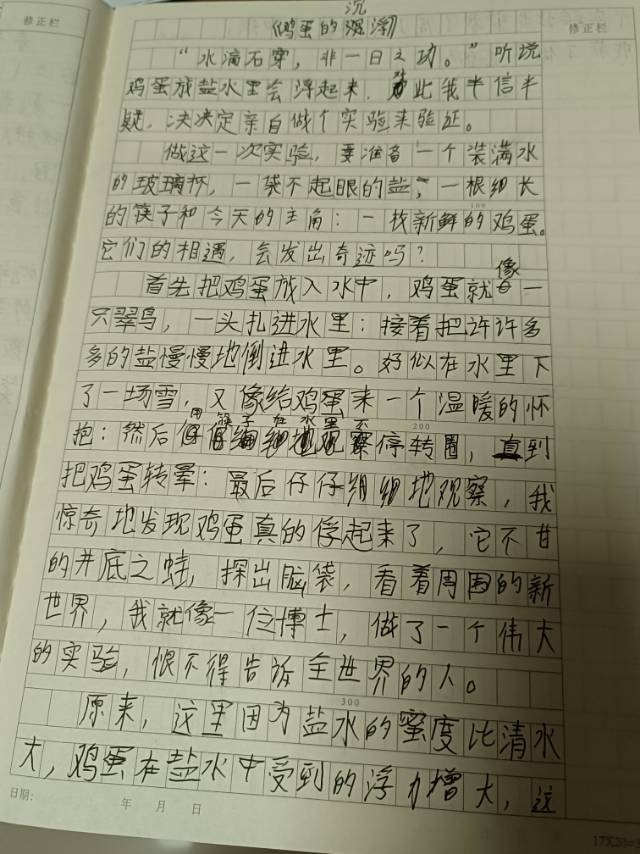 修正栏
修正栏
沉
《鸡蛋的浮》
“水滴石穿,非一日之功。”听说
鸡蛋放盐水里会浮起来,为此我半信半
疑,决决定亲自做个实验来验证。
做这一次实验,要准备一个装满水
的玻璃杯,一袋不起眼的盐;一根细长
的筷子和今天的主角:一枚新鲜的鸡蛋。
100
它们的相遇,会发出奇迹吗?
像
首先把鸡蛋放入水中,鸡蛋就一
只翠鸟,一头扎进水里:接着把许许多
多的盐慢慢地倒进水里。好似在水里下
了一场雪,又像给鸡蛋来一个温暖的怀
用筷子在水里不
200
抱:然后停转圈,直到
把鸡蛋转晕:最后仔仔细细地观察,我
惊奇地发现鸡蛋真的俘起来了,它不甘
的井底之蛙,探出脑袋,看着周围的新
世界,我就像一位博士,做了一个伟大
的实验,恨不得告诉全世界的人。
300
原来,这里因为盐水的蜜度比清水
大,鸡蛋在盐水中受到的浮力增大,这
日期: 年 月 日